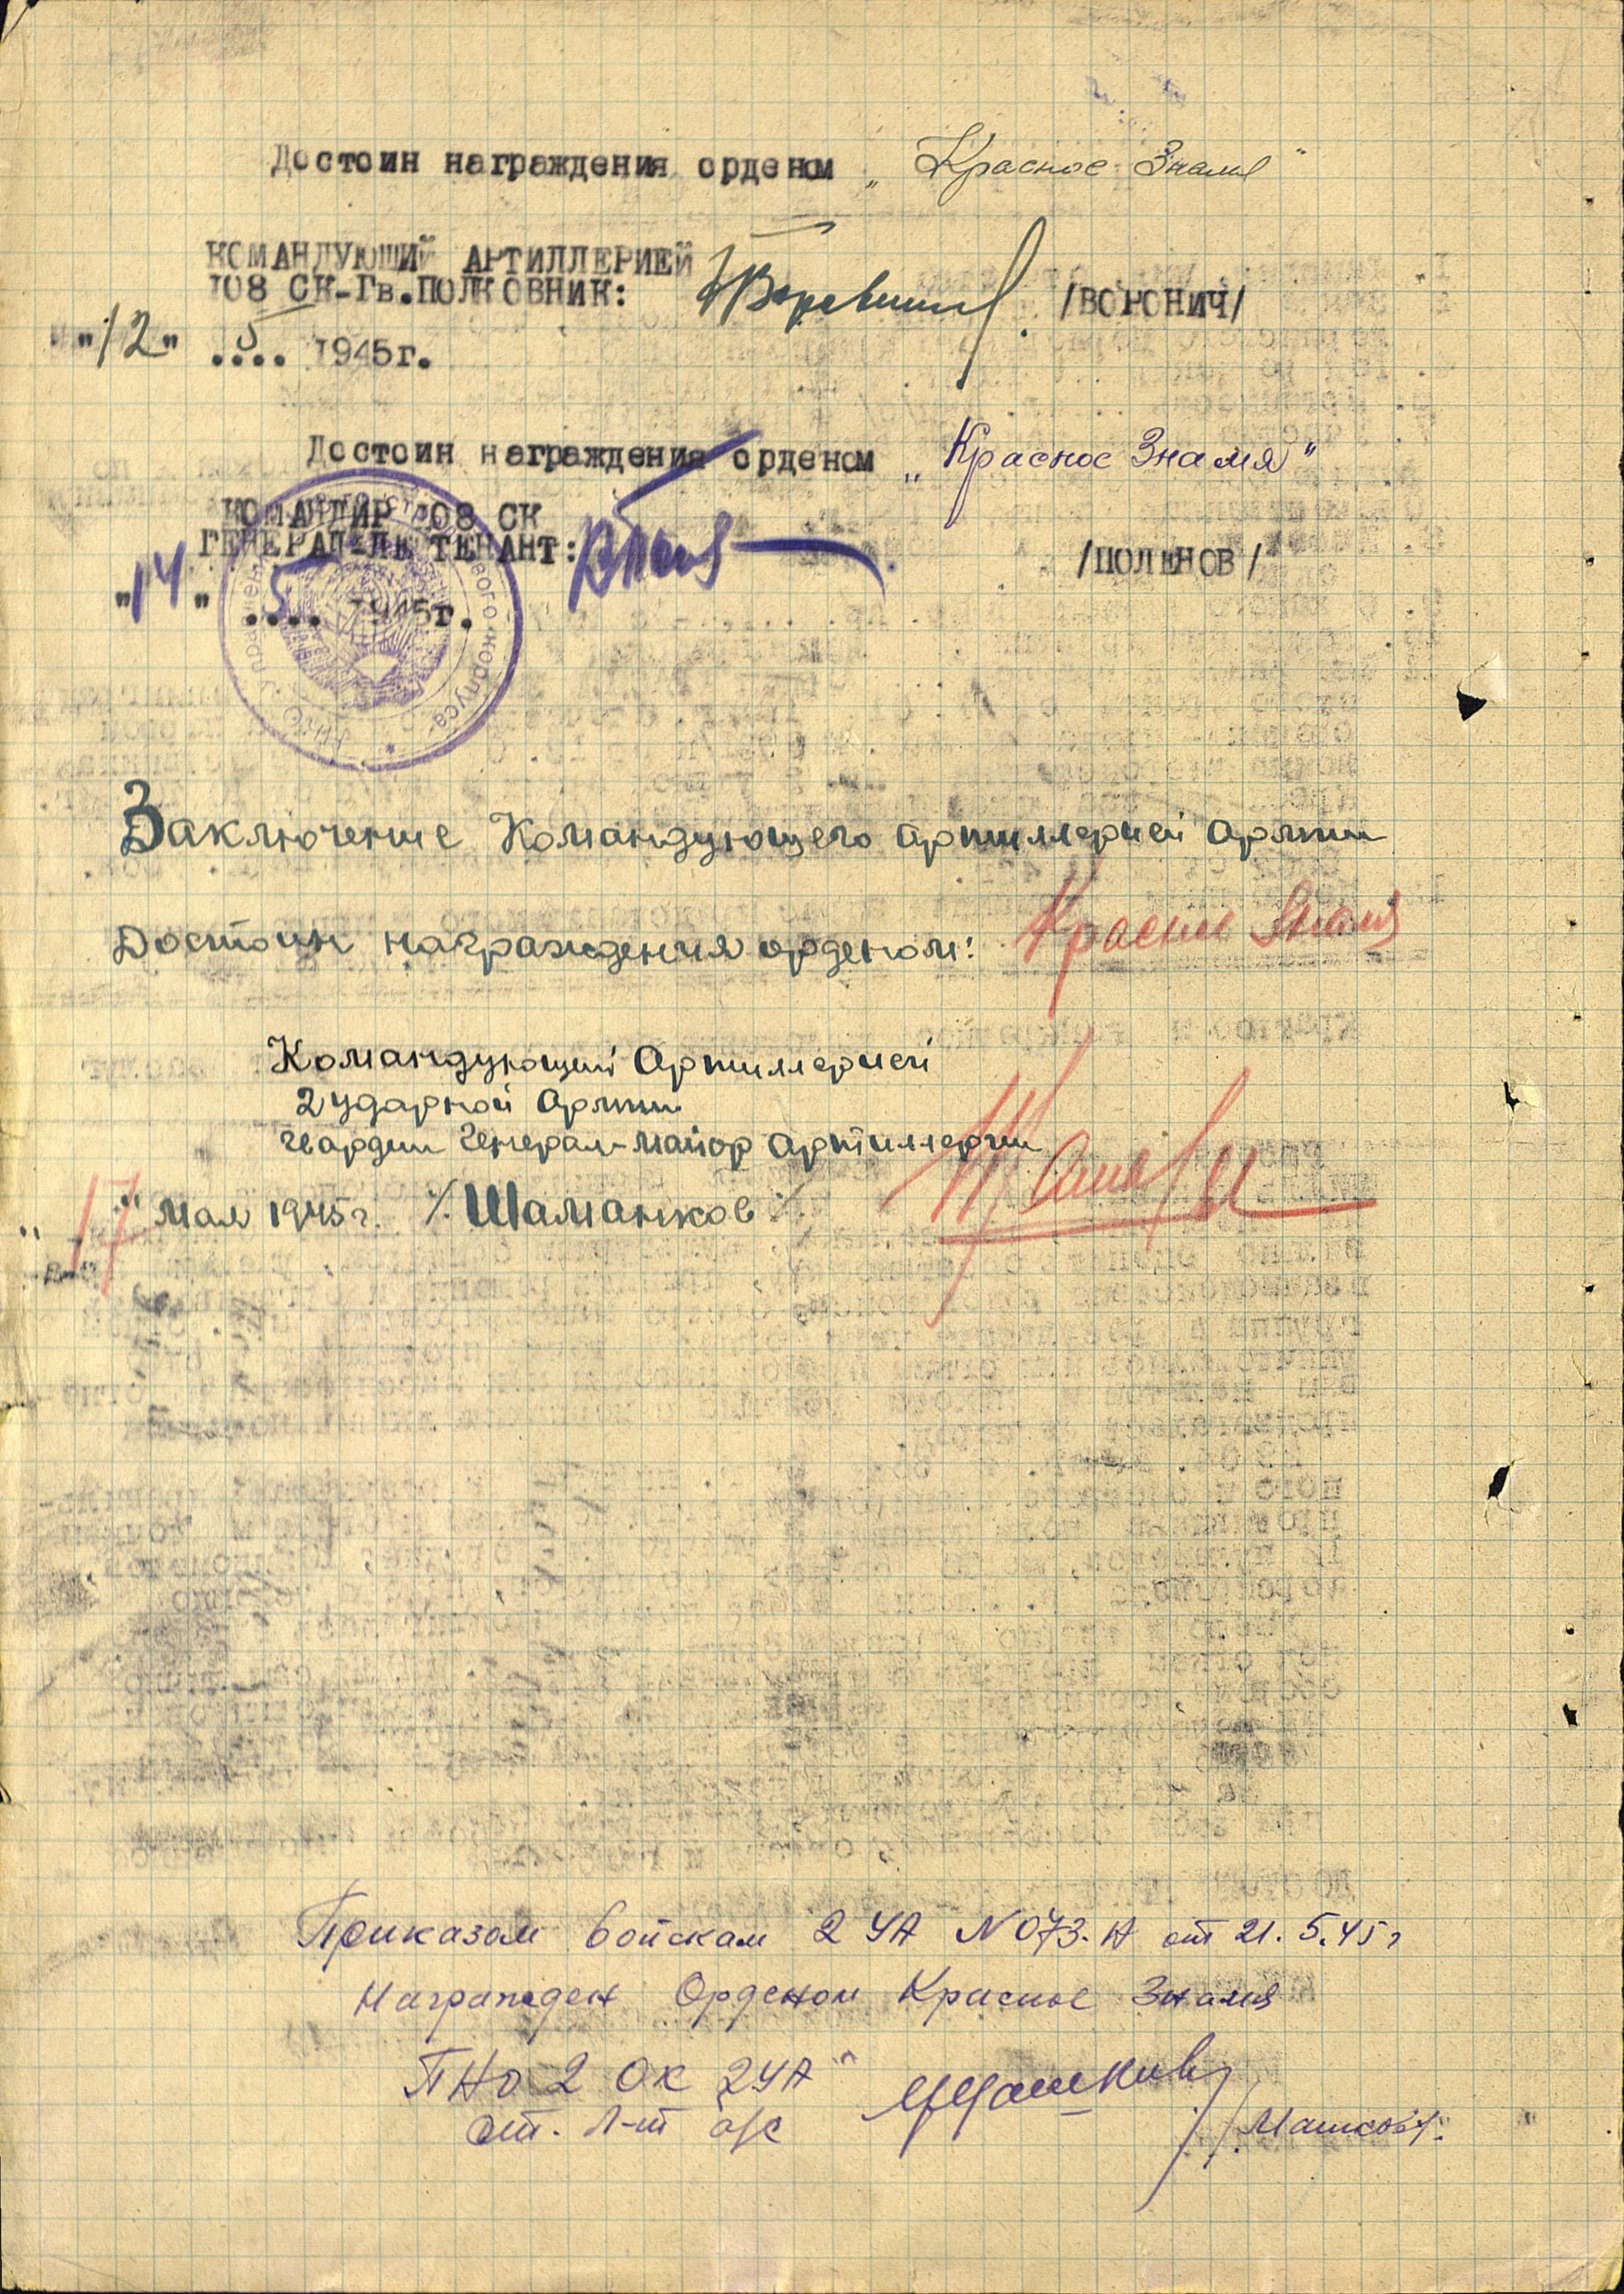 Достоин награждения орденом „Красное Знамя"
КОМАНДУЮЩИЙ АРТИЛЛЕРИЕЙ
108 СК-Гв.ПОЛКОВНИК: /ВОРОНИЧ/
"12" 5 .... 1945г.
Достоин награждения орденом „Красное Знамя"
КОМАНДИР 108 СК
ГЕНЕРАЛ-ЛЕЙТЕНАНТ: /ПОЛЕНОВ/
"14" 5 .... 1945г.
Заключение Командующего артиллерией Армии
Достоин награждения орденом: Красное Знамя
Командующий Артиллерией
2 ударной Армии
гвардии Генерал-майор артиллерии
"17" мая 1945г. /Шаманков/
Приказом войскам 2 УА N 073-Н от 21.5.45г
Награжден Орденом Красное Знамя
ПНО 2 ОК 2УА
ст. л-т а/с /Машков/